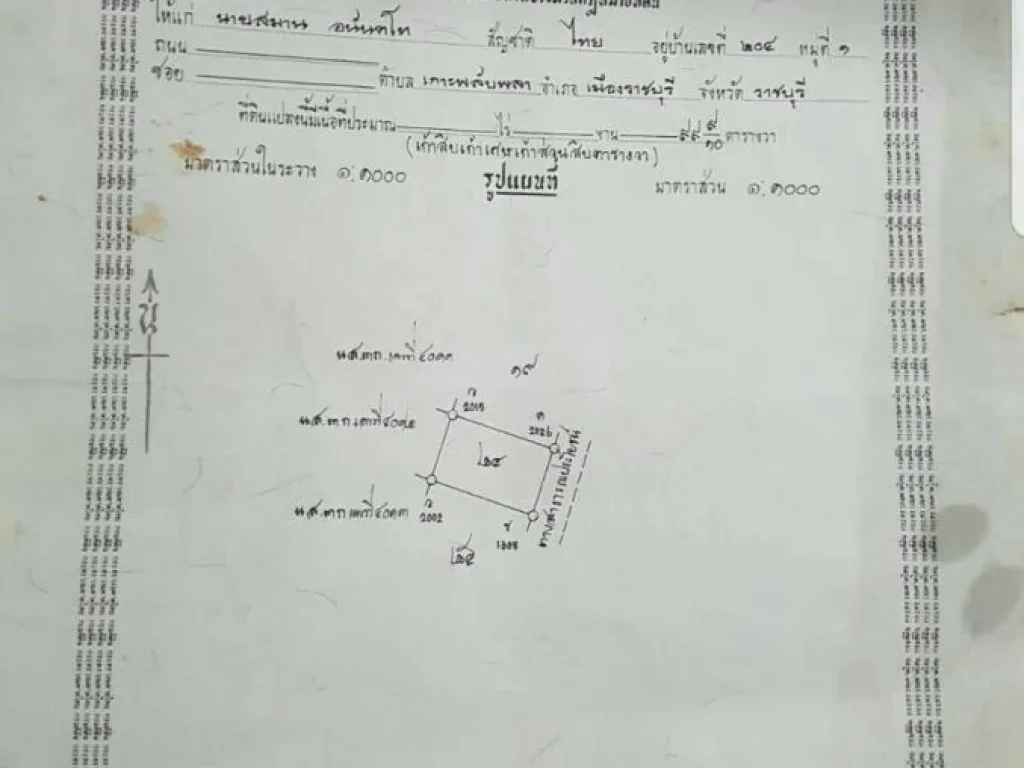 ให้แก่ นายสมาน อนันตโท สัญชาติ ไทย อยู่บ้านเลขที่ ๒๐๔ หมู่ที่ ๑
ถนน
ซอย ตำบล เกาะพลับพลา อำเภอ เมืองราชบุรี จังหวัด ราชบุรี
ที่ดินแปลงนี้มีเนื้อที่ประมาณ ไร่ งาน ๙๙ ๙/๑๐ ตารางวา
(เก้าสิบเก้าเศษเก้าส่วนสิบตารางวา)
มาตราส่วนในระวาง ๑:๑๐๐๐ รูปแผนที่ มาตราส่วน ๑:๑๐๐๐
น
น.ส.๓ก.เลขที่
๑๙
2015
น.ส.๓ก.เลขที่
ค
2026
๒๕
ทางสาธารณประโยชน์
น.ส.๓ก.เลขที่
2002